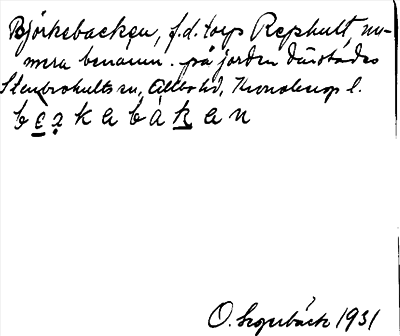 Björkebacken, f.d. torp Rephult, nu-
mera benämn. på jorden därstädes
Stenbrohults sn, Allbo hd, Kronobergs l.
bɛrkabákan
O. 1931